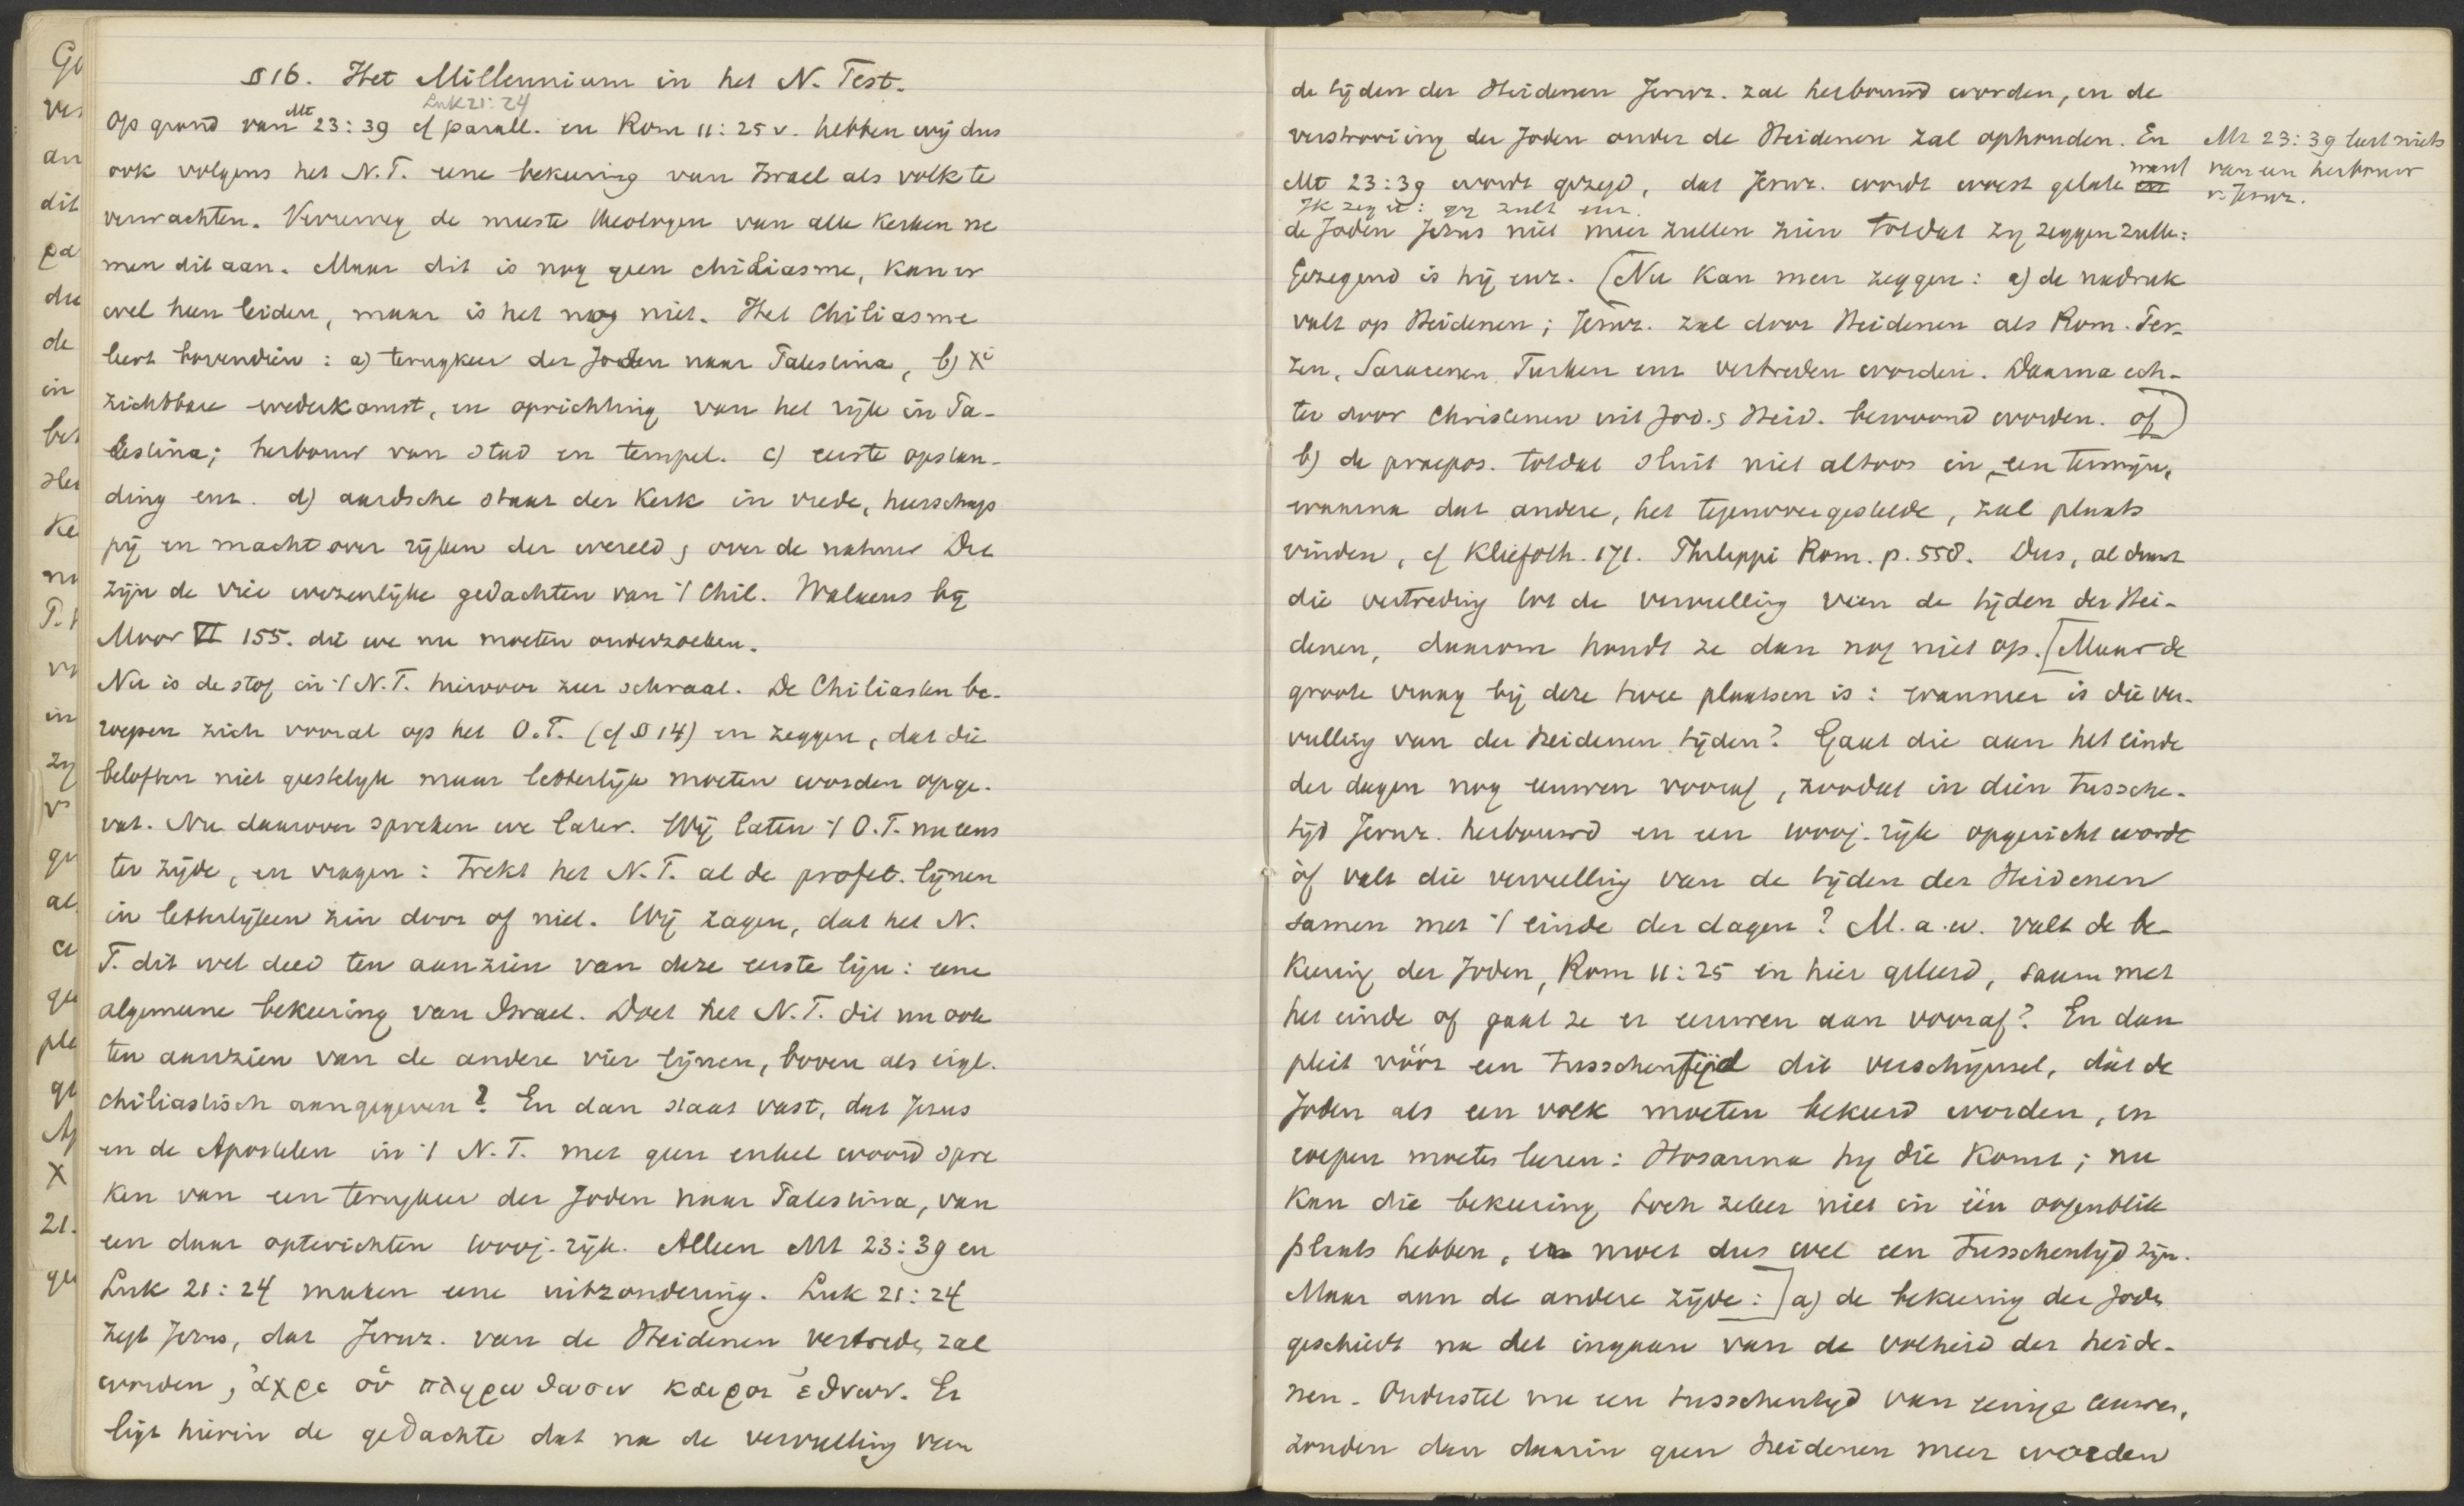 § 16. Het Millennium in het N. Test.
Luk 21: 24
Op grond van Mt 23: 39 cf parall. en Rom 11: 25 v. hebben wij dus
ook volgens het N.T. eene bekeering van Israel als volk te
verwachten. Verreweg de meeste theologen van alle kerken ne
men dit aan. Maar dit is nog geen chiliasme, kan er
wel heen leiden, maar is het nog niet. Het Chiliasme
leert bovendien: a) terugkeer der Joden naar Palestina, b) Xi
zichtbare wederkomst, en oprichting van het rijk in Pa-
lestina; herbouw van stad en tempel. c) eerste opstan-
ding enz. d) aardsche staat der Kerk in vrede, heerschap
pij en macht over rijken der wereld & over de natuur Dit
zijn de vier wezenlijke gedachten van 't Chil. Walaeus bij
Moor VI 155. die we nu moeten onderzoeken.
Nu is de stof in 't N.T. hiervoor zeer schraal. De Chiliasten be-
roepen zich vooral op het O.T. (cf § 14) en zeggen, dat die
beloften niet geestelijk maar letterlijk moeten worden opge-
vat. Nu daarover spreken we later. Wij laten 't O.T. nu eens
ter zijde, en vragen: trekt het N.T. al de profet. lijnen
in letterlijken zin door of niet. Wij zagen, dat het N.
T. dit wel deed ten aanzien van deze eerste lijn: eene
algemeene bekeering van Israel. Doet het N.T. dit nu ook
ten aanzien van de andere vier lijnen, boven als eigl.
chiliastisch aangegeven? En dan staat vast, dat Jezus
en de Apostelen in 't N.T. met geen enkel woord spre
ken van een terugkeer der Joden naar Palestina, van
een daar opterichten koninj. rijk. Alleen Mt 23: 39 en
Luk 21: 24 maken eene uitzondering. Luk 21: 24
zegt Jezus, dat Jeruz. van de Heidenen vertreden zal
worden, ἀχρι οὑ πληρωθωσιν καιροι ἐθνων. Er
ligt hierin de gedachte dat na de vervulling van
de tijden der Heidenen Jeruz. zal herbouwd worden, en de
verstrooiing der Joden onder de Heidenen zal ophouden. En
Mt 23: 39 wordt gezegd, dat Jeruz. wordt woest gelaten want
Ik zeg u: gij zult enz.
de Joden Jezus niet meer zullen zien totdat zij zeggen zullen:
Gezegend is hij enz. (Nu kan men zeggen: a) de nadruk
valt op Heidenen; Jeruz. zal door Heidenen als Rom. Per-
zen, Saracenen, Turken enz vertreden worden. Daarna ech-
ter door Christenen uit Jod. & Heid. bewoond worden. of)
b) de praepos. totdat sluit niet altoos in een termijn,
waarna dat andere, het tegenovergestelde, zal plaats
vinden, cf Kliefoth. 171. Philippi Rom. p. 558. Dus, al duurt
die vertreding tot de vervulling van de tijden der Hei-
denen, daarom houdt ze dan nog niet op. [Maar de
groote vraag bij deze twee plaatsen is: wanneer is die ver-
vulling van der Heidenen tijden? Gaat die aan het einde
der dagen nog eeuwen vooraf, zoodat in dien tussche-
tijd Jeruz. herbouwd en een rijk opgericht wordt
òf valt die vervulling van de tijden der Heidenen
samen met 't einde der dagen? M.a.w. valt de be-
keering der Joden, Rom 11: 25 en hier geleerd, saam met
het einde of gaat ze er eeuwen aan vooraf? En dan
pleit vóór een tusschentijd dit verschijnsel, dat de
Joden als een volk moeten bekeerd worden, en
roepen moeten leeren: Hosanna hij die komt; nu
kan die bekeering toch zeker niet in één oogenblik
plaats hebben, er moet dus wel een tusschentijd zijn.
Maar aan de andere zijde:] a) de bekeering der Joden
geschiedt na het ingaan van de volheid der heide-
nen. Onderstel nu een tusschentijd van eenige eeuwen,
zouden dan daarin geen heidenen meer worden
Mt 23: 39 leert niets
van een herbouw
v. Jeruz.